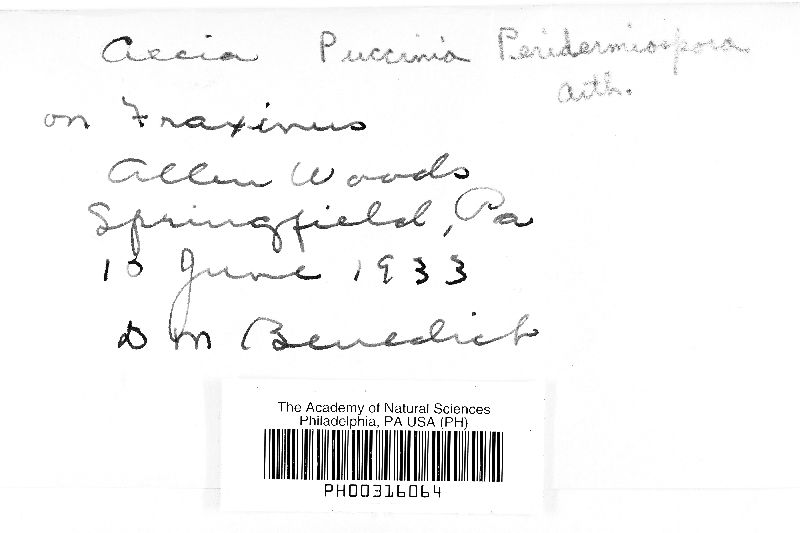 Aecia Puccinia Peridermiospora
Arth.
on Fraxinus
Allen Woods
Springfield, Pa
10 June 1933
D M Benedict
The Academy of Natural Sciences
Philadelphia, PA USA (PH)
PH00316064